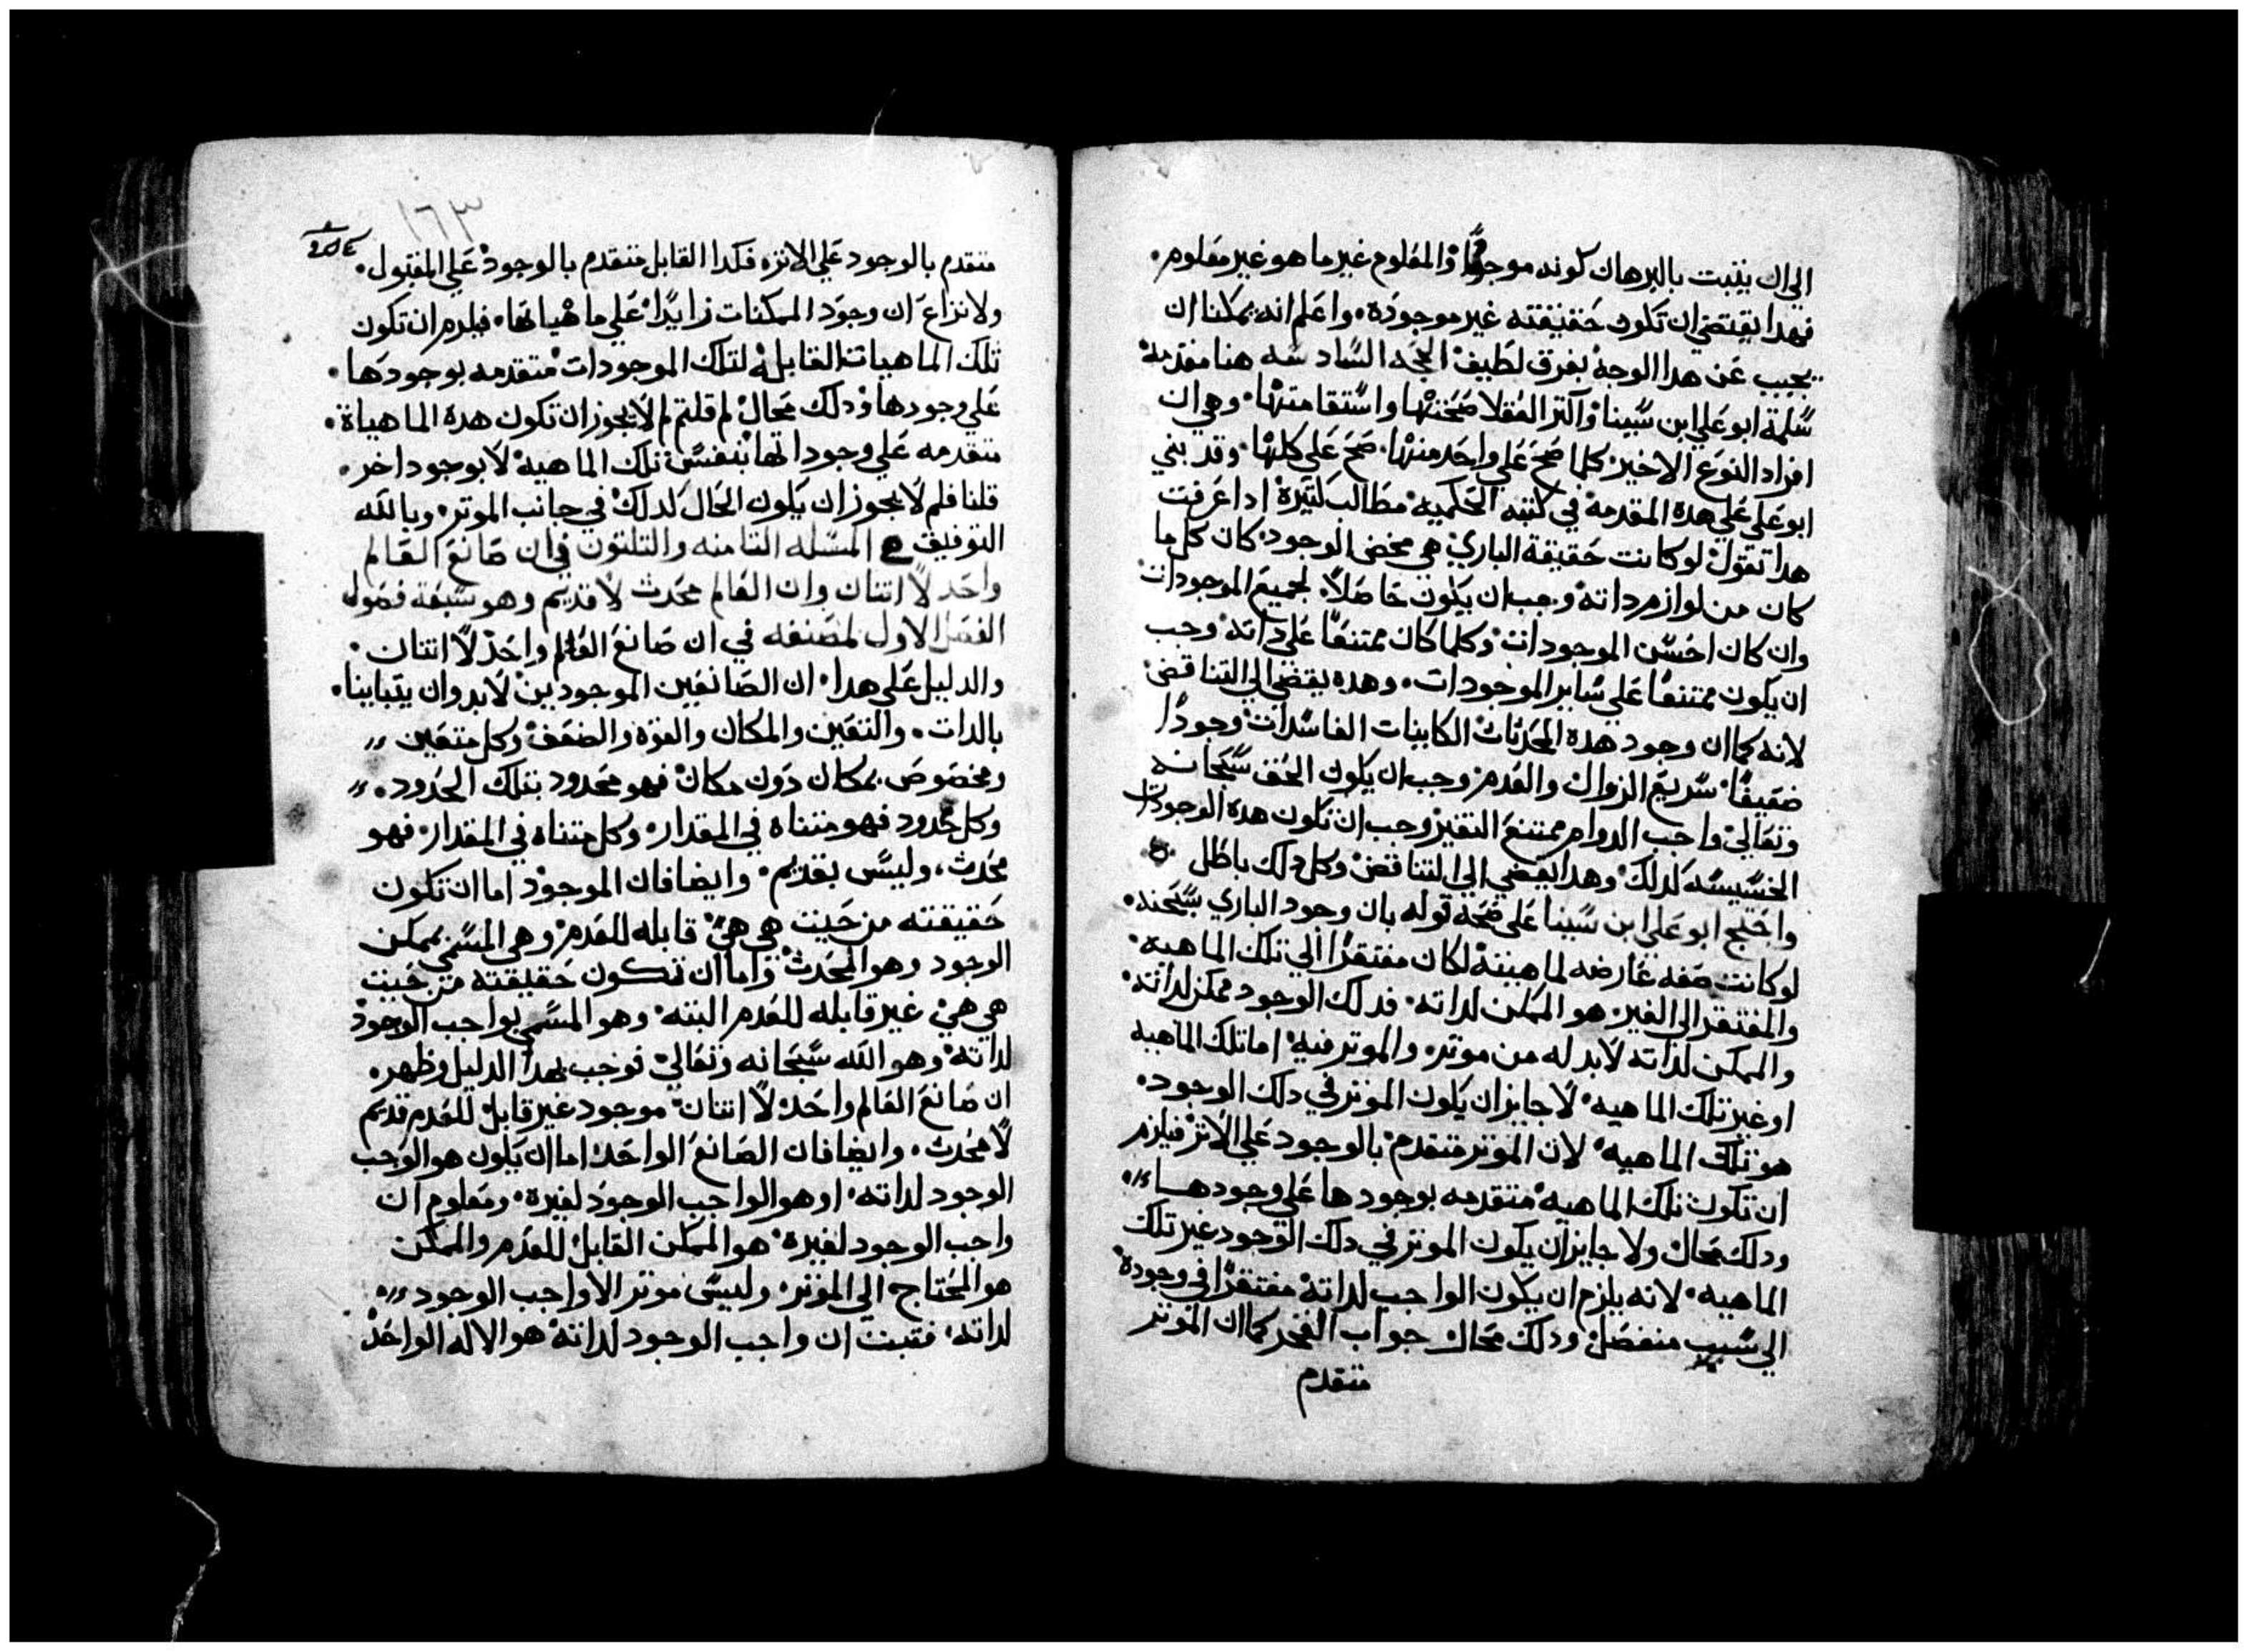 الي ان يتبت بالبرهان كونه موجودًا والمعلوم غير ما هو غير معلوم.
فهدا يقتضي ان تكون حقيقته غير موجوده. واعلم انه يمكننا ان
يجيب عن هدا الوجه بفرق لطيف الحجه السادسه هنا مقدمه
سلمة ابو علي ابن سينا واكتر العقلا صحتها واستقامتها. وهي ان
افراد النوع الاخير كلما صح علي واحد منها. صح علي كلها. وقد بني
ابو علي علي هده المقدمه في كتبه الحكميه مطالب كتيرة ادا عرفت
هدا تقول لو كانت حقيقة الباري هي محض الوجود. كان كل ما
كان من لوازم داته وجب ان يكون حاصلاً. لجميع الموجودات
وان كان احسن الموجودات وكلما كان ممتنعًا علي داته وجب
ان يكون ممتنعًا علي ساير الموجودات. وهده يقضي الي التناقض
لانه كما ان وجود هده المحدتات الكاينات الفاسدات وجودًا
ضعيفًا. سريع الزوال والعدم وجب ان يكون الحق سبحانه
وتعالي واجب الدوام ممتنع التغير وجب ان تكون هده الوجودات
الخسيسه كدلك وهدا يقضي الي التناقض وكل دلك باطل
واحتج ابو علي ابن سينا علي صحة قوله بان وجود الباري سبحنه.
لو كانت صفه عارضه لماهيته لكان مفتقرًا الي تلك الماهيه.
والمفتقر الي الغير هو الممكن لداته. فدلك الوجود ممكن لداته.
والممكن لداته لابد له من موتر. والموتر فيه اما تلك الماهيه
او غير تلك الماهيه لا جايز ان يكون الموتر في دلك الوجود.
هو تلك الماهيه لان الموتر متقدم بالوجود علي الاتر فيلزم
ان تكون تلك الماهيه متقدمه بوجودها علي وجودها
ودلك محال ولا جايز ان يكون الموتر في دلك الوجود غير تلك
الماهيه. لانه يلزم ان يكون الواجب لداته مفتقرًا في وجوده
الي سبب منفصل ودلك محال جواب الفخر كما ان الموتر
متقدم
١٦٣
متقدم بالوجود علي الاتره فكدا القابل متقدم بالوجود علي المقبول.
ولا نزاع ان وجود الممكنات زايدًا علي ماهياتها. فيلزم ان تكون
تلك الماهيات القابله لتلك الموجودات متقدمه بوجودها.
علي وجودها ودلك محال لم قلتم لم لا يجوز ان تكون هده الماهياة.
متقدمه علي وجوداتها بنفس تلك الماهيه لا بوجود اخر.
قلنا فلم لا يجوز ان يكون الحال كدلك في جانب الموتر. وبالله
التوفيق المسله التامنه والتلتون في ان صانع العالم
واحد لا اتنان وان العالم محدث لا قديم وهو سبعة فصول
الفصل الاول لمصنفه في ان صانع العالم واحد لا اتنان.
والدليل علي هدا. ان الصانعين الموجودين لابد وان يتباينا.
بالدات. والتعين والمكان والقوة والضعف وكل متعين
ومخصوص بمكان دون مكان فهو محدود بتلك الحدود.
وكل محدود فهو متناه في المقدار. وكل متناه في المقدار. فهو
محدث، وليس بقديم. وايضا فان الموجود اما ان تكون
حقيقته من حيت هي هي قابله للعدم وهي المسمي بممكن
الوجود وهو المحدث واما ان تكون حقيقته من حيت
هي هي غير قابله للعدم البته وهو المسمي بواجب الوجود
لداته وهو الله سبحانه وتعالي فوجب بهدا الدليل وظهر.
ان صانع العالم واحد لا اتنان موجود غير قابل للعدم قديم
لا محدث. وايضا فان الصانع الواحد اما ان يكون هو الواجب
الوجود لداته. او هو الواجب الوجود لغيره. ومعلوم ان
واجب الوجود لغيره هو الممكن القابل للعدم والممكن
هو المحتاج الي الموتر. وليس موتر الا واجب الوجود
لداته. فتبت ان واجب الوجود لداته هو الاله الواحد